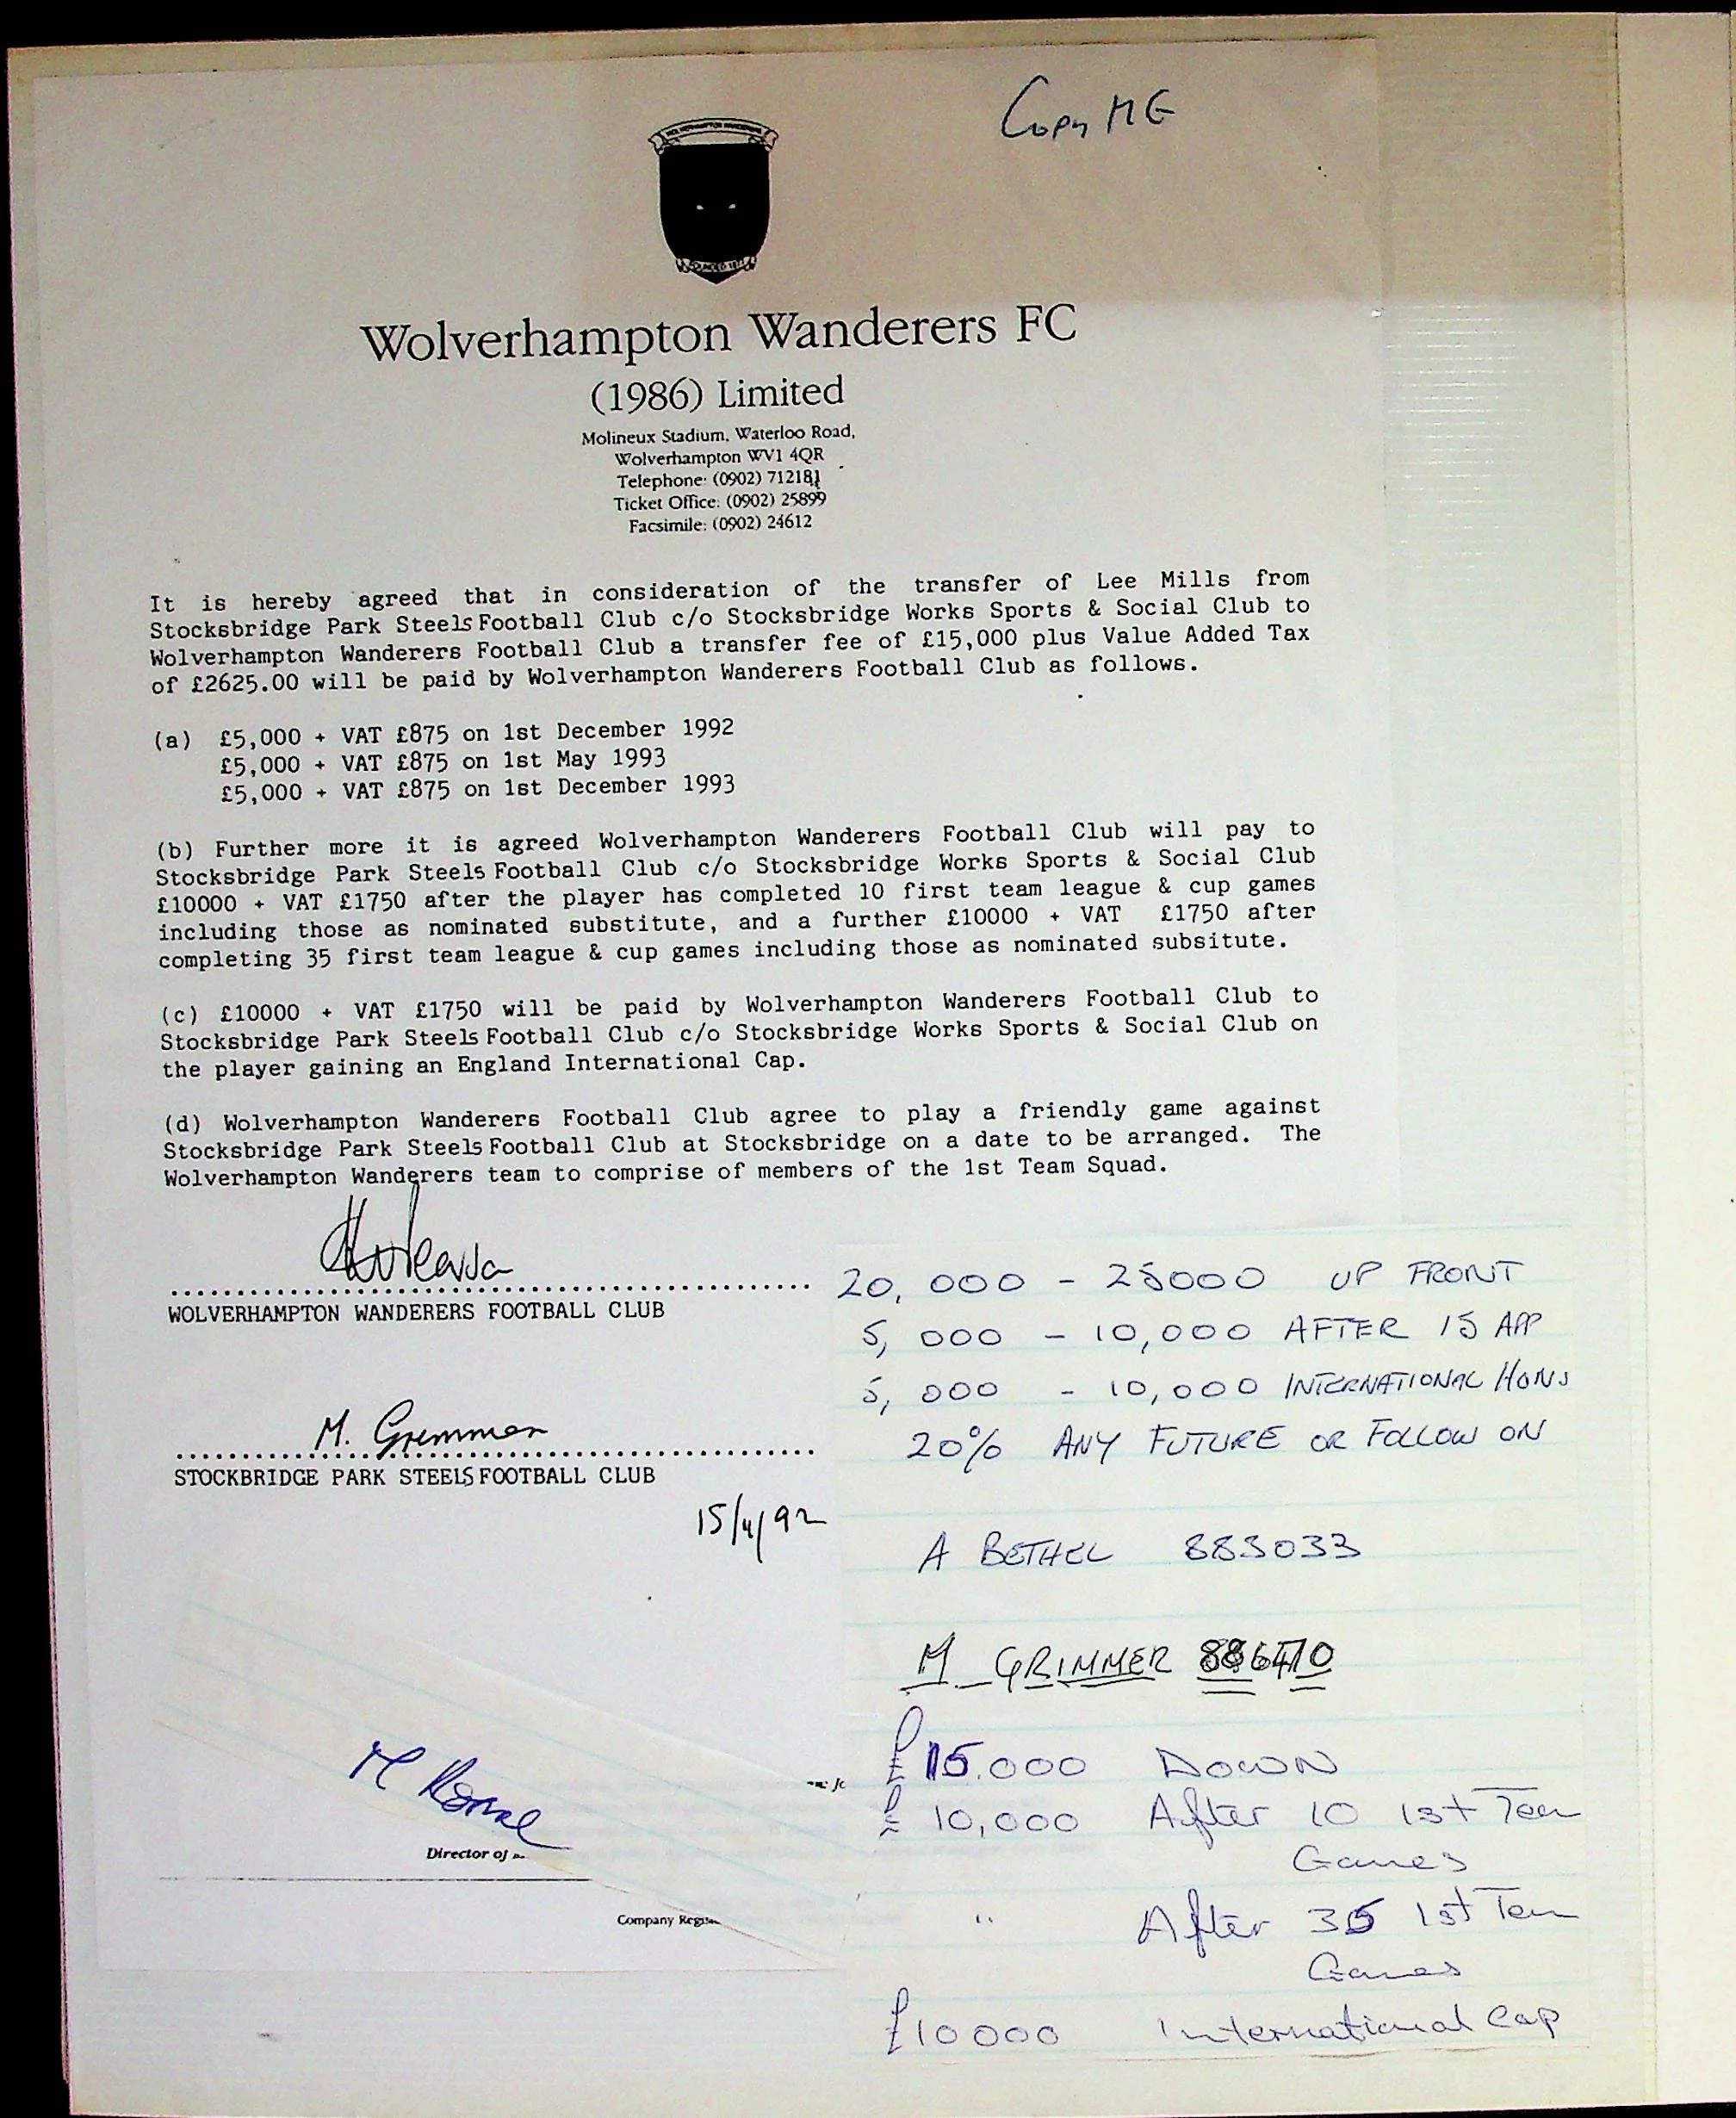 Copy MG
WOLVERHAMPTON WANDERERS
FOUNDED 1877
Wolverhampton Wanderers FC
(1986) Limited
Molineux Stadium, Waterloo Road,
Wolverhampton WV1 4QR
Telephone: (0902) 712181
Ticket Office: (0902) 25899
Facsimile: (0902) 24612
It is hereby agreed that in consideration of the transfer of Lee Mills from
Stocksbridge Park Steels Football Club c/o Stocksbridge Works Sports & Social Club to
Wolverhampton Wanderers Football Club a transfer fee of £15,000 plus Value Added Tax
of £2625.00 will be paid by Wolverhampton Wanderers Football Club as follows.
(a) £5,000 + VAT £875 on 1st December 1992
£5,000 + VAT £875 on 1st May 1993
£5,000 + VAT £875 on 1st December 1993
(b) Further more it is agreed Wolverhampton Wanderers Football Club will pay to
Stocksbridge Park Steels Football Club c/o Stocksbridge Works Sports & Social Club
£10000 + VAT £1750 after the player has completed 10 first team league & cup games
including those as nominated substitute, and a further £10000 + VAT £1750 after
completing 35 first team league & cup games including those as nominated subsitute.
(c) £10000 + VAT £1750 will be paid by Wolverhampton Wanderers Football Club to
Stocksbridge Park Steels Football Club c/o Stocksbridge Works Sports & Social Club on
the player gaining an England International Cap.
(d) Wolverhampton Wanderers Football Club agree to play a friendly game against
Stocksbridge Park Steels Football Club at Stocksbridge on a date to be arranged. The
Wolverhampton Wanderers team to comprise of members of the 1st Team Squad.
WOLVERHAMPTON WANDERERS FOOTBALL CLUB
M. Grimmer
STOCKBRIDGE PARK STEELS FOOTBALL CLUB
15/4/92
Director of
Company Regis
20,000 - 25000 UP FRONT
5,000 - 10,000 AFTER 15 APP
5,000 - 10,000 INTERNATIONAL HONS
20% ANY FUTURE OR FOLLOW ON
A BETHEL 883033
M. GRIMMER
£15.000 DOWN
£10,000 After 10 1st Team
Games
" After 35 1st Team
Games
£10000 International Cap